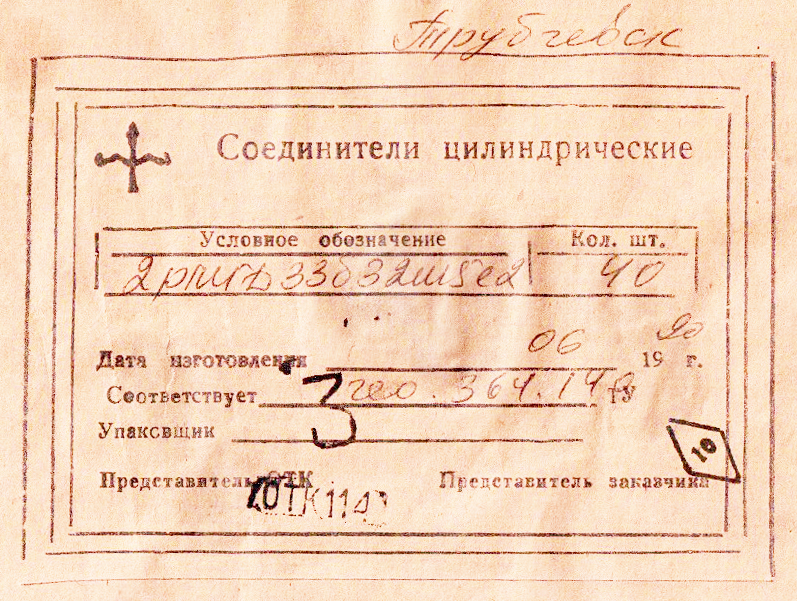 Трубчевск
Соединители цилиндрические
Условное обозначение Кол. шт.
2рмгд33б32ш5е2 40
Дата изготовления 06 1990 г.
Соответствует гео.364.140 ТУ
Упаковщик 3
Представитель ОТК Представитель заказчика
10
ОТК 114